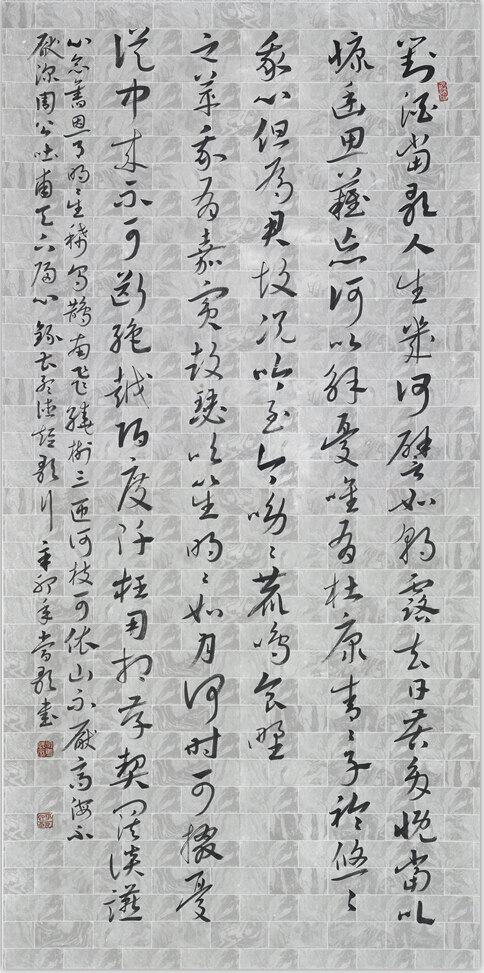 對酒當歌人生幾何譬如朝露去日苦多慨當以
慷幽思難忘何以解憂唯有杜康青〻子衿悠〻
我心但為君故沉吟至今呦〻鹿鳴食野
之苹我有嘉賓鼓瑟吹笙明〻如月何時可掇憂
從中來不可斷絕越陌度阡枉用相存契闊談讌
心念舊恩月明星稀烏鵲南飛繞樹三匝何枝可依山不厭高海不
厭深周公吐哺天下歸心錄曹孟德短歌行辛卯年當歌書